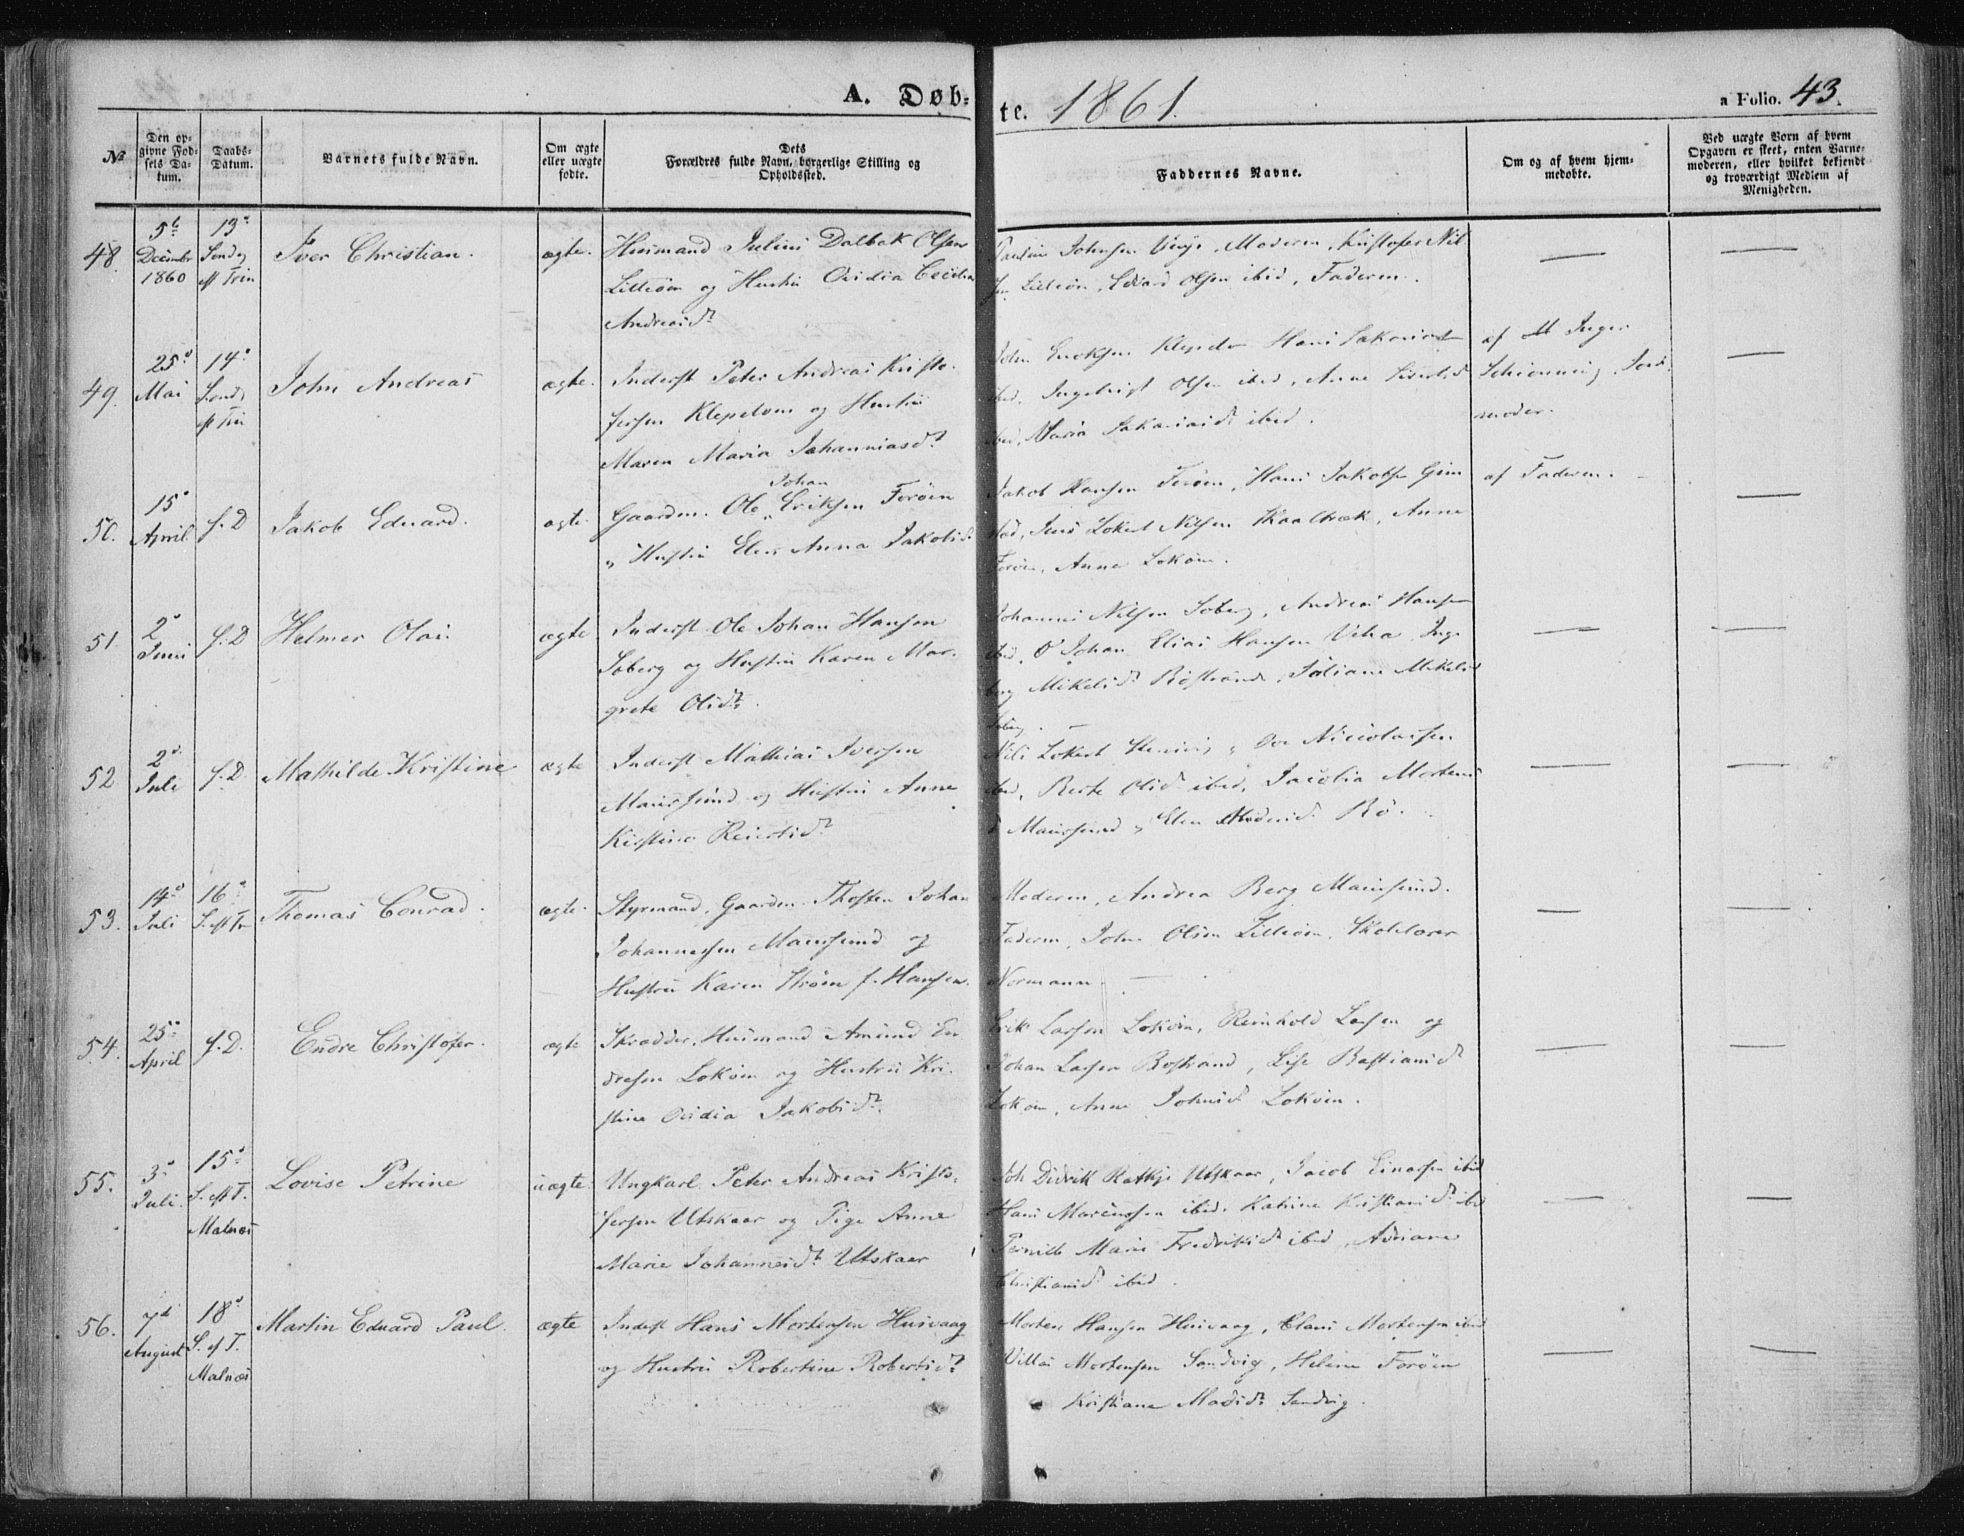 A. Døb-
te. 1861.
a Folio. 43.
№
Den op-
givne Fød-
sels Da-
tum.
Daabs-
Datum.
Barnets fulde Navn.
Om ægte
eller uægte
fødte.
Dets
Forældres fulde Navn, borgerlige Stilling og
Opholdssted.
Faddernes Navne.
Om og af hvem hjem-
medøbte.
Ved uægte Børn af hvem
Opgaven er skeet, enten Barne-
moderen, eller hvilket bekjendt
og troværdigt Medlem af
Menigheden.
48.
5te
Decembr
1860
13de
Sønd
eft Trin
Iver Christian.
ægte.
Huusmand Julius Dalbak Olsen
Lilleøen og Hustru Ovidia Cecilia
Andreasdr
Johnsen, Moderen, Kristofer Nil
sen Lilleøen, Edvard Olsen ibid, Faderen.
49.
25de
Mai
14de
Sønd
eft Trin
John Andreas
ægte.
Inderst Peter Andreas Kristo-
fersen Klepelven og Hustru
Maren Maria Johanniasdr
Ingebrigt Olsen ibid, Anne
ibid, Maria Sakariasdr ibid.
af Inger
Jord-
moder.
50.
15de
April
s. D
Jakob Eduard.
ægte.
Gaardm. Ole Johan Eriksen Forøen
og Hustru Elen Anna Jakobsd.
Jakob Hansen Forøen, Hans Jakobsen Gim
stad, Jens Lokert Nilsen, Anne
Forøen, Anne Lokøen.
af Faderen.
51.
2de
Juni
s. D
Helmer Olai.
ægte
Inderst Ole Johan Hansen
Soberg og Hustru Karen Mar-
grete Olsdr.
Johannes Nilsen Soberg, Andreas Hansen
ibid, O Johan Elias Hansen, Inge
borg Mikelsdr Bøstrand, Juliane Mikelsd
Soberg.
52
2de
Juli
s. D.
Mathilde Kristine
ægte
Inderst Mathias Iversen
Maursund og Hustru Anne
Kirstine Reiertsdr
Nils Lokert og Ove Nicolaisen
ibid, Berte Olsd. ibid, Jacobia Mortens
d Maursund, Elen Bø.
53.
14de
Juli
16de
S. eft Tr
Thomas Conrad.
ægte.
Styrmand, Gaardm. Thosten Johan
Johannessen Maursund og
Hustru Karen Strøm f. Hansen.
Moderen, Andrea Berg Maursund.
Faderen, John Olsen Lilleøen, Skolelærer
Normann.
54.
25de
April
s. D.
Endre Christofer.
ægte
Skrædder, Huusmand Amund En
dresen Lokøen og Hustru Kri-
stine Ovidia Jakobsdr.
Erik Larsen Lokøen, Reinhold Larsen og
Johan Larsen Bøstrand, Lise Bastiansdr
Lokøen, Anne Johnsdr Lokøen.
55.
3de
Juli.
15de
S. eft T.
Malnæs
Lovise Petrine
uægte.
Ungkarl Peter Andreas Kristo-
fersen Utskaar og Pige Anne
Marie Johannesdr Utskaar
Joh Didrik Ratkje Utskaar, Jacob Einarsen ibid
Hans Mariussen ibid, Katrine Kristiansdr ibid
Pernille Marie Fredriksdr ibid, Adriane
Christiansdr ibid.
56.
7de
August
18de
S. ef T.
Malnæs
Martin Eduard Paul.
ægte
Inderst Hans Mortensen Husvaag
og Hustru Robertine Robertsdr
Morten Hansen Husvaag, Claus Mortensen ibid
Villas Mortensen Sandvig, Helene Forøen
Kristiane Madsdr Sandvig.